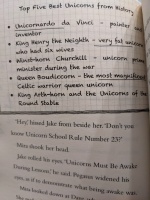 Top Five Best Unicorns from History
• Unicornardo da Vinci - painter and
inventor
• King Henry the Neighth - very fat unicorn
who had six wives
• Windhorn Churchill - unicorn prime
minister during the war
• Queen Boudiccorn - the most magnificent
Celtic warrior queen unicorn
• King Arth-horn and the Unicorns of the
Round Stable
'Hey,' hissed Jake from beside her. 'Don't you
know Unicorn School Rule Number 23?'
Mien shook her head.
Jake rolled his eyes. 'Unicorns Must Be Awake
During Lessons,' he said. Pegasus widened his
eyes, as if to demonstrate what being awake was.
looked down at